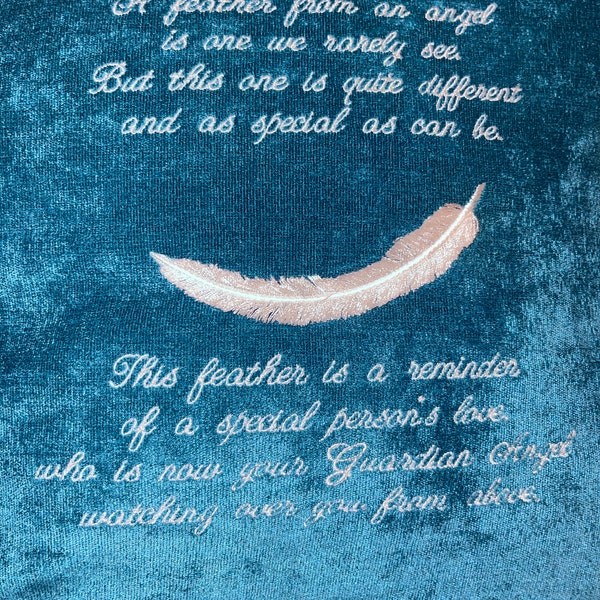 A feather from an angel
is one we rarely see.
But this one is quite different
and as special as can be.
This feather is a reminder
of a special person's love.
who is now your Guardian Angel
watching over you from above.